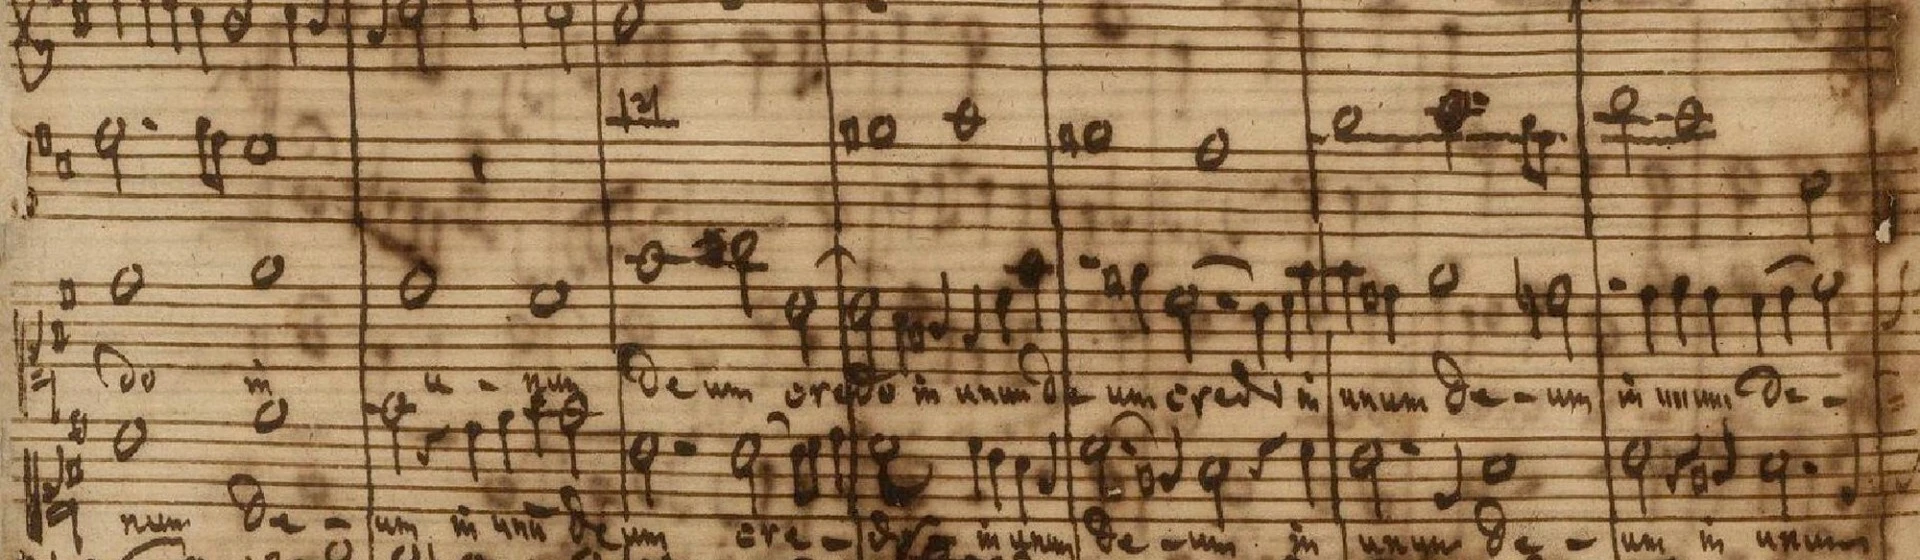 do in u - num de um credo in unum de um credo in unum de - um in unum de -
num de - um in unū de um cre - do in unum de - um in unum de - um in unum